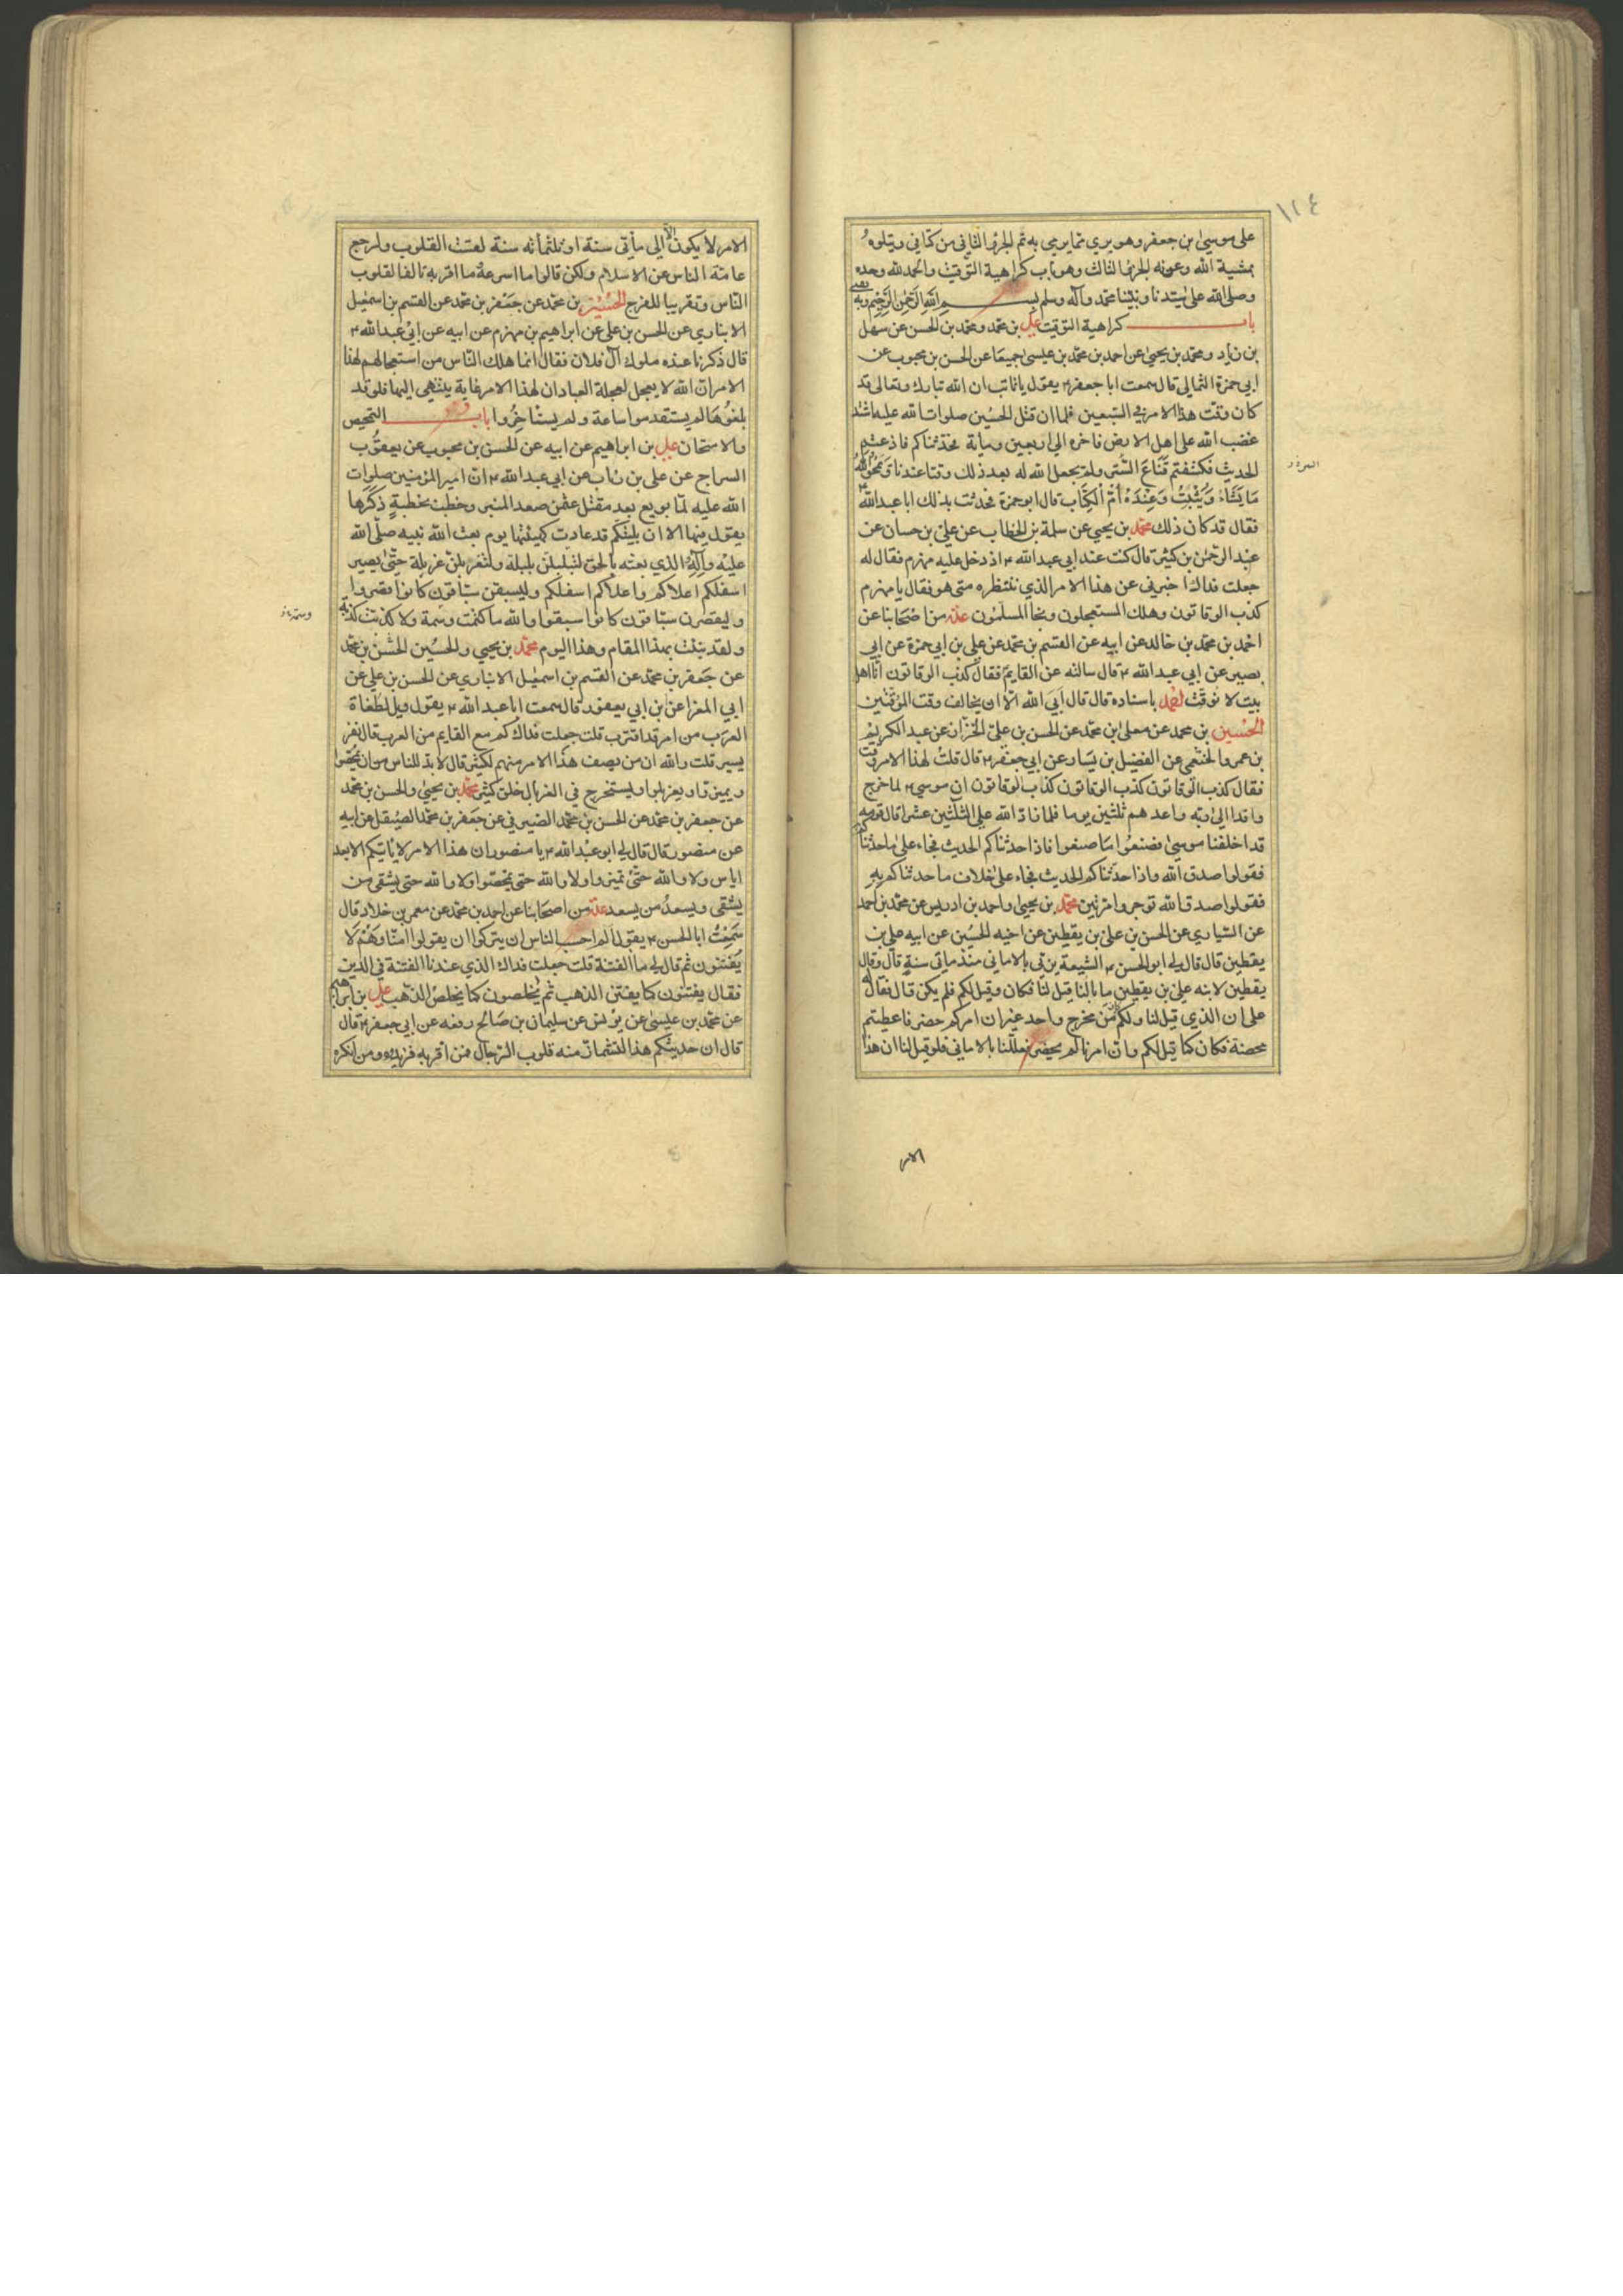 ١٢٤
على موسى بن جعفر وهو يرى ما يرمى به تم الجزء الثاني من كتابي ويتلوه
بمشية الله وعونه الجزء الثالث وهو باب كراهية التوقيت والحمد لله وحده
وصلى الله على سيدنا ونبينا محمد وآله وسلم بسم الله الرحمن الرحيم وبه
باب كراهية التوقيت على بن محمد ومحمد بن الحسن عن سهل
بن زياد ومحمد بن يحيى عن احمد بن محمد بن عيسى جميعا عن الحسن بن محبوب عن
ابي حمزة الثمالي قال سمعت ابا جعفر ع يقول يا ثابت ان الله تبارك وتعالى قد
كان وقت هذا الامر في السبعين فلما ان قتل الحسين صلوات الله عليه اشتد
غضب الله على اهل الارض فاخره الى اربعين ومأية فحدثناكم فاذعتم
الحديث فكشفتم قناع الستر ولم يجعل الله له بعد ذلك وقتا عندنا ويمحو الله
ما يشاء ويثبت وعنده أم الكتاب قال ابو حمزة فحدثت بذلك ابا عبد الله ع
فقال قد كان ذلك محمد بن يحيى عن سلمة بن الخطاب عن علي بن حسان عن
عبد الرحمن بن كثير قال كنت عند ابي عبد الله ع اذ دخل عليه مهزم فقال له
جعلت فداك اخبرني عن هذا الامر الذي ننتظره متى هو فقال يا مهزم
كذب الوقاتون وهلك المستعجلون ونجا المسلمون عدة من اصحابنا عن
احمد بن محمد بن خالد عن ابيه عن القسم بن محمد عن علي بن ابي حمزة عن ابي
بصير عن ابي عبد الله ع قال سالته عن القايم فقال كذب الوقاتون انا اهل
بيت لا نوقت احمد باسناده قال قال ابى الله الا ان يخالف وقت الموقتين
الحسين بن محمد عن معلى بن محمد عن الحسن بن علي الخزاز عن عبد الكريم
بن عمرو الخثعمي عن الفضيل بن يسار عن ابي جعفر ع قال قلت لهذا الامر وقت
فقال كذب الوقاتون كذب الوقاتون كذب الوقاتون ان موسى ع لما خرج
وافدا الى ربه واعدهم ثلثين يوما فلما زاد الله على الثلثين عشرا قال قومه
قد اخلفنا موسى فصنعوا ما صنعوا فاذا حدثناكم الحديث فجاء على ما حدثناكم
فقولوا صدق الله واذا حدثناكم الحديث فجاء على خلاف ما حدثناكم به
فقولوا صدق الله توجروا مرتين محمد بن يحيى واحمد بن ادريس عن محمد بن احمد
عن السياري عن الحسن بن علي بن يقطين عن اخيه الحسين عن ابيه علي بن
يقطين قال قال لي ابو الحسن ع الشيعة تربي بالاماني منذ مأتي سنة قال وقال
يقطين لابنه علي بن يقطين ما بالنا قيل لنا فكان وقيل لكم فلم يكن قال فقال له
على ان الذي قيل لنا ولكم كان من مخرج واحد غير ان امركم حضر فاعطيتم
محضه فكان كما قيل لكم وان امرنا لم يحضر فعللنا بالاماني فلو قيل لنا ان هذا
الامر
الامر لا يكون الا الى مأتي سنة او ثلثمأئة سنة لقست القلوب ولرجع
عامة الناس عن الاسلام ولكن قالوا ما اسرعه ما اقربه تالفا لقلوب
الناس وتقريبا للفرج الحسين بن محمد عن جعفر بن محمد عن القسم بن اسمعيل
الانباري عن الحسن بن علي عن ابراهيم بن مهزم عن ابيه عن ابي عبد الله ع
قال ذكرنا عنده ملوك آل فلان فقال انما هلك الناس من استعجالهم لهذا
الامر ان الله لا يعجل لعجلة العباد ان لهذا الامر غاية ينتهي اليها فلو قد
بلغوها لم يستقدموا ساعة ولم يستاخروا باب التمحيص
والامتحان علي بن ابراهيم عن ابيه عن الحسن بن محبوب عن يعقوب
السراج عن علي بن رئاب عن ابي عبد الله ع ان امير المؤمنين صلوات
الله عليه لما بويع بعد مقتل عثمن صعد المنبر وخطب بخطبة ذكرها
يقول فيها الا ان بليتكم قد عادت كهيئتها يوم بعث الله نبيه صلى الله
عليه وآله والذي بعثه بالحق لتبلبلن بلبلة ولتغربلن غربلة حتى يصير
اسفلكم اعلاكم واعلاكم اسفلكم وليسبقن سباقون كانوا قصروا
وليقصرن سباقون كانوا سبقوا والله ما كتمت وسمة ولا كذبت كذبة
ولقد نبئت بهذا المقام وهذا اليوم محمد بن يحيى والحسين الحسن بن محمد
عن جعفر بن محمد عن القسم بن اسمعيل الانباري عن الحسن بن علي عن
ابي المغرا عن بن ابي يعفور قال سمعت ابا عبد الله ع يقول ويل لطغاة
العرب من امر قد اقترب قلت جعلت فداك كم مع القايم من العرب قال نفر
يسير قلت والله ان من يصف هذا الامر منهم لكثير قال لا بد للناس من ان يمحصوا
ويميزوا ويغربلوا ويستخرج في الغربال خلق كثير محمد بن يحيى والحسن بن محمد
عن جعفر بن محمد عن الحسن بن محمد الصيرفي عن جعفر بن محمد الصيقل عن ابيه
عن منصور قال قال لي ابو عبد الله ع يا منصور ان هذا الامر لا ياتيكم الا بعد
اياس ولا والله حتى تميزوا ولا والله حتى يمحصوا ولا والله حتى يشقى من
يشقى ويسعد من يسعد عدة من اصحابنا عن احمد بن محمد عن معمر بن خلاد قال
سمعت ابا الحسن ع يقول الم احسب الناس ان يتركوا ان يقولوا امنا وهم لا
يفتنون ثم قال لي ما الفتنة قلت جعلت فداك الذي عندنا الفتنة في الدين
فقال يفتنون كما يفتن الذهب ثم يخلصون كما يخلص الذهب علي بن ابراهيم
عن محمد بن عيسى عن يونس عن سليمان بن صالح رفعه عن ابي جعفر ع قال
قال ان حديثكم هذا لتشمأز منه قلوب الرجال فمن اقر به فزيدوه ومن انكره